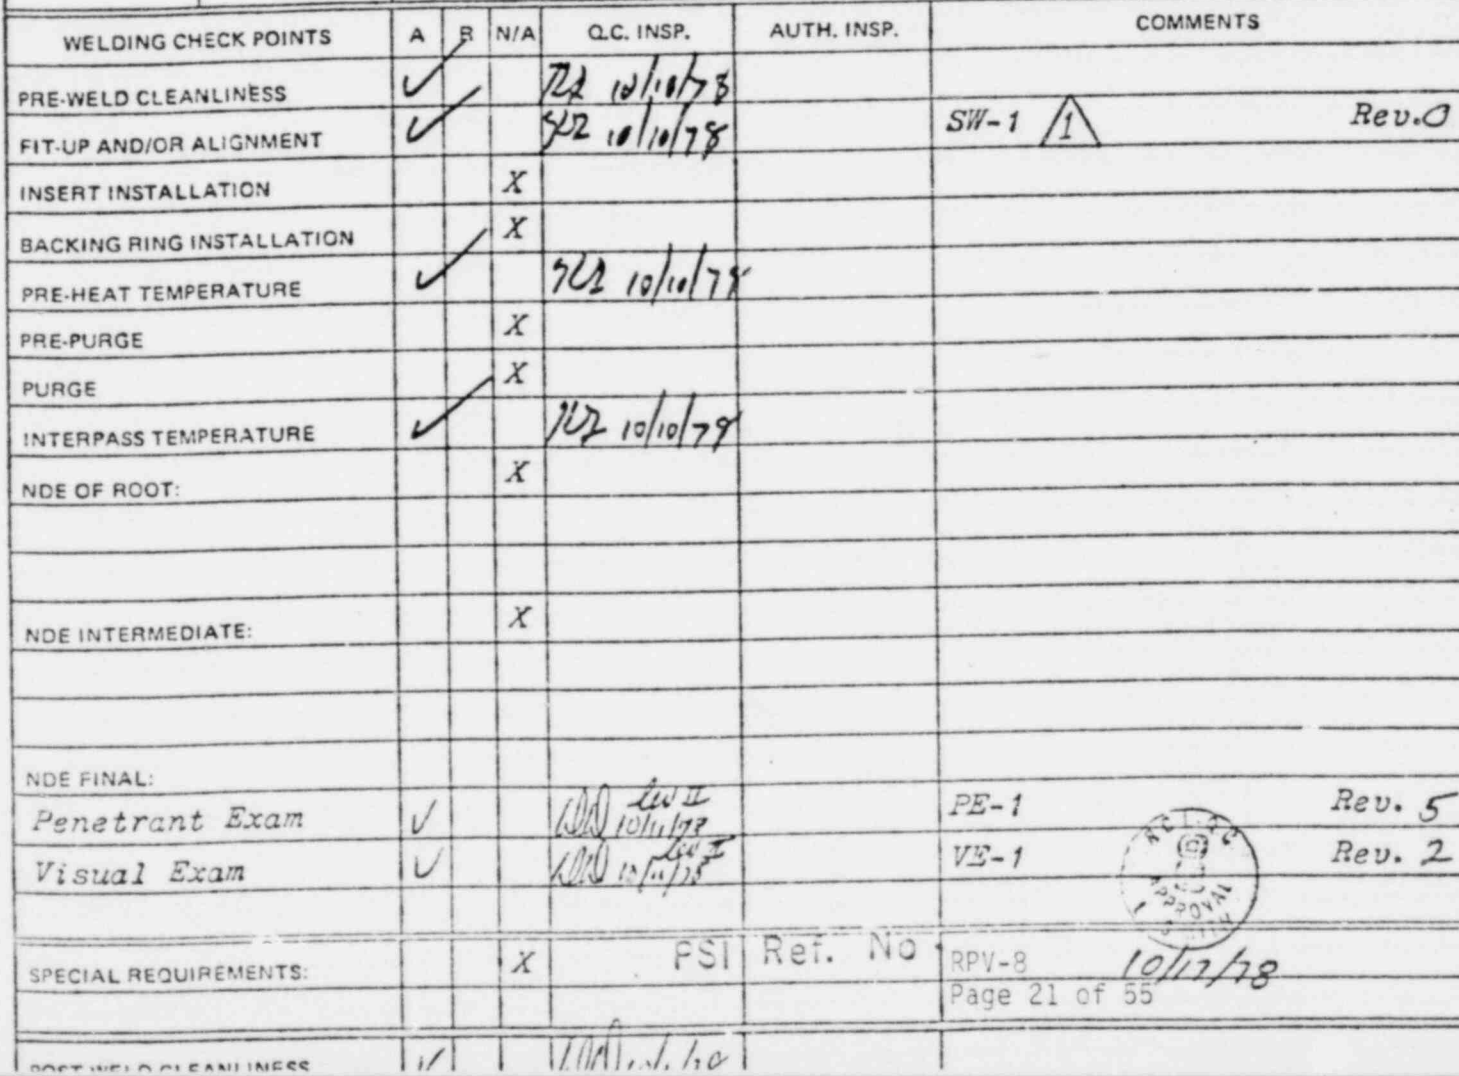 WELDING CHECK POINTS A R N/A Q.C. INSP. AUTH. INSP. COMMENTS
PRE-WELD CLEANLINESS ✓ 10/10/78
FIT-UP AND/OR ALIGNMENT ✓ 10/10/78 SW-1 1 Rev.0
INSERT INSTALLATION X
BACKING RING INSTALLATION X
PRE-HEAT TEMPERATURE ✓ 10/10/78
PRE-PURGE X
PURGE X
INTERPASS TEMPERATURE ✓ 10/10/78
NDE OF ROOT: X
NDE INTERMEDIATE: X
NDE FINAL:
Penetrant Exam ✓ lev II 10/11/78 PE-1 Rev. 5
Visual Exam ✓ lev II 10/11/78 VE-1 Rev. 2
APPROVAL
SPECIAL REQUIREMENTS: X PSI Ref. No. RPV-8 10/17/78
Page 21 of 55
POST WELD CLEANLINESS ✓